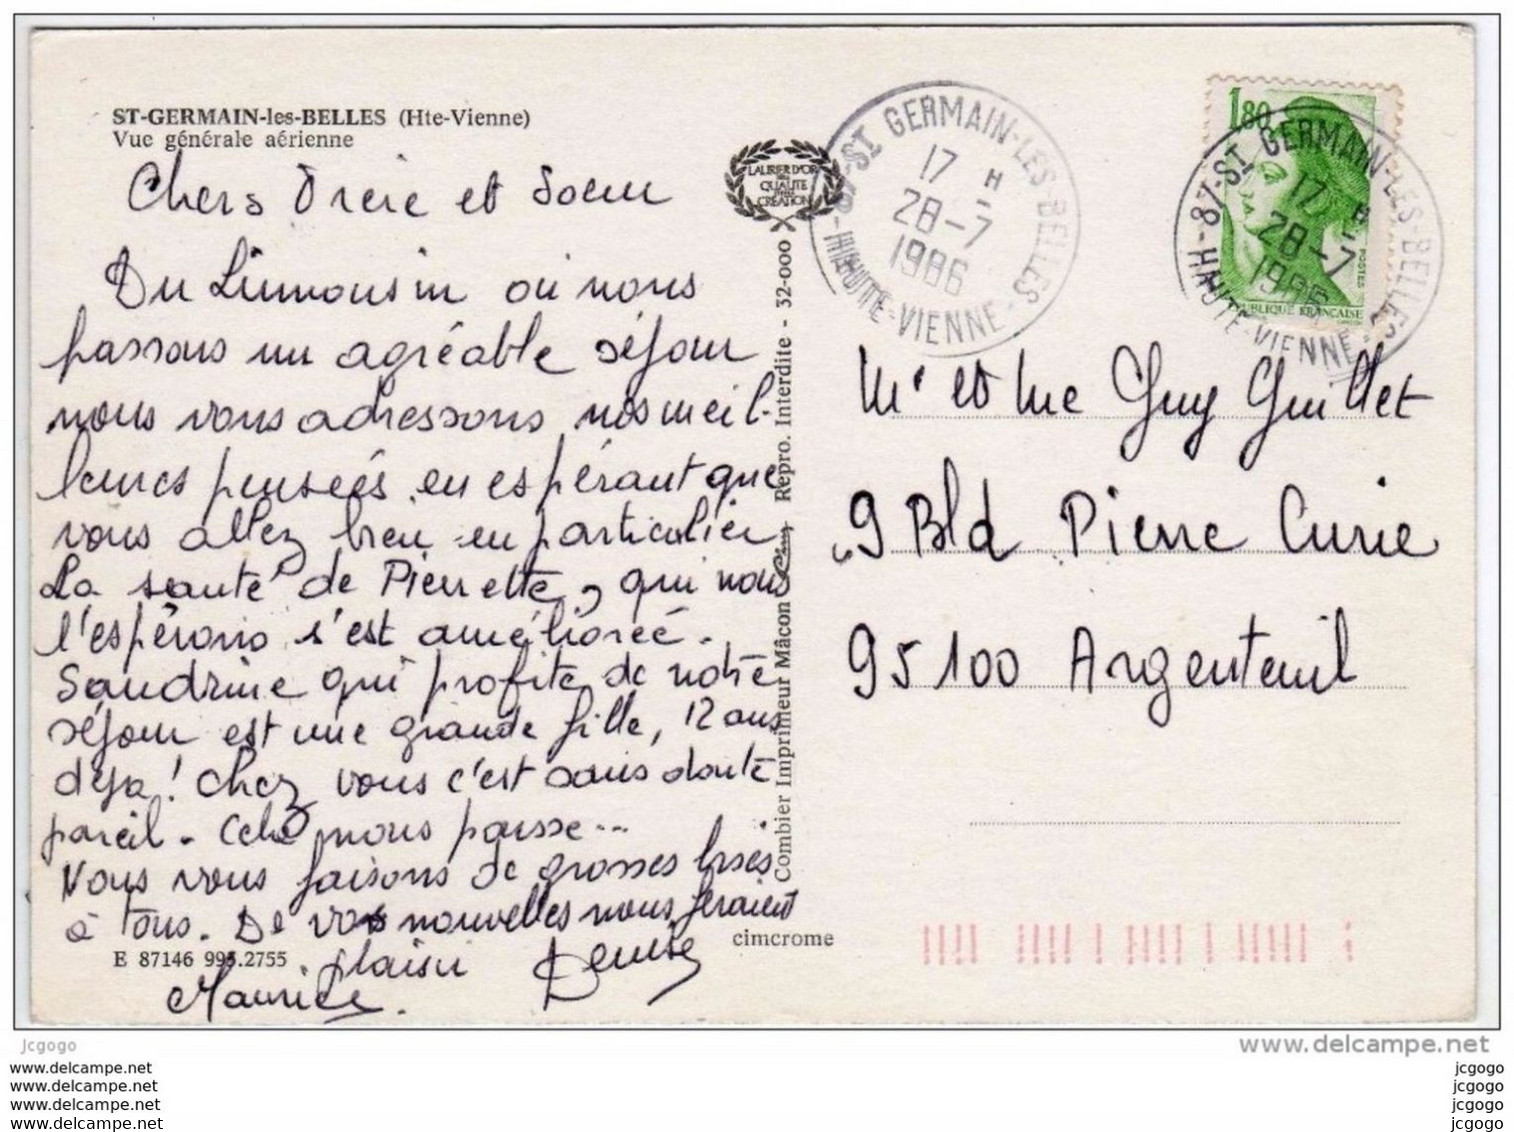 ST-GERMAIN-les-BELLES (Hte-Vienne)
Vue générale aérienne
Chers Frère et Soeur
Du Limousin où nous
passons un agréable séjour
nous vous adressons nos meil-
leures pensées en espérant que
vous allez bien en particulier
La santé de Pierrette, qui nous
l'espérons s'est améliorée.
Sandrine qui profite de notre
séjour est une grande fille, 12 ans
déjà ! Chez vous c'est sans doute
pareil. Cela nous pousse...
Nous vous faisons de grosses bises
à Tous. De vos nouvelles nous feraient
plaisir
Denise
Maurice.
E 87146 995.2755
cimcrome
LAURIER D'OR
QUALITE
CRÉATION
Combier Imprimeur Mâcon Repro. Interdite - 32-000
87-ST GERMAIN-LES-BELLES
17 H
28-7
1986
HAUTE-VIENNE
1,80
POSTES
REPUBLIQUE FRANCAISE
87-ST GERMAIN-LES-BELLES
17 H
28-7
1986
HAUTE-VIENNE
Mr et Me Guy Guillet
9 Bld Pierre Curie
95100 Argenteuil
jcgogo
www.delcampe.net
www.delcampe.net
www.delcampe.net
www.delcampe.net
www.delcampe.net
jcgogo
jcgogo
jcgogo
jcgogo